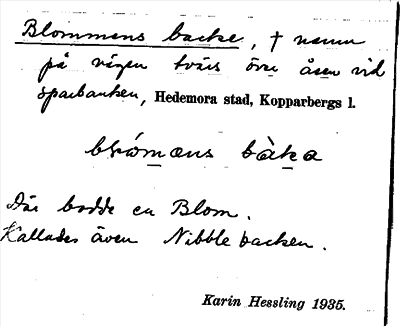 Blommens backe, † namn
på vägen tvärs över åsen vid
sparbanken, Hedemora stad, Kopparbergs l.
blómæns bàka
Där bodde en Blom.
Kallades även Nibblebacken.
Karin Hessling 1935.